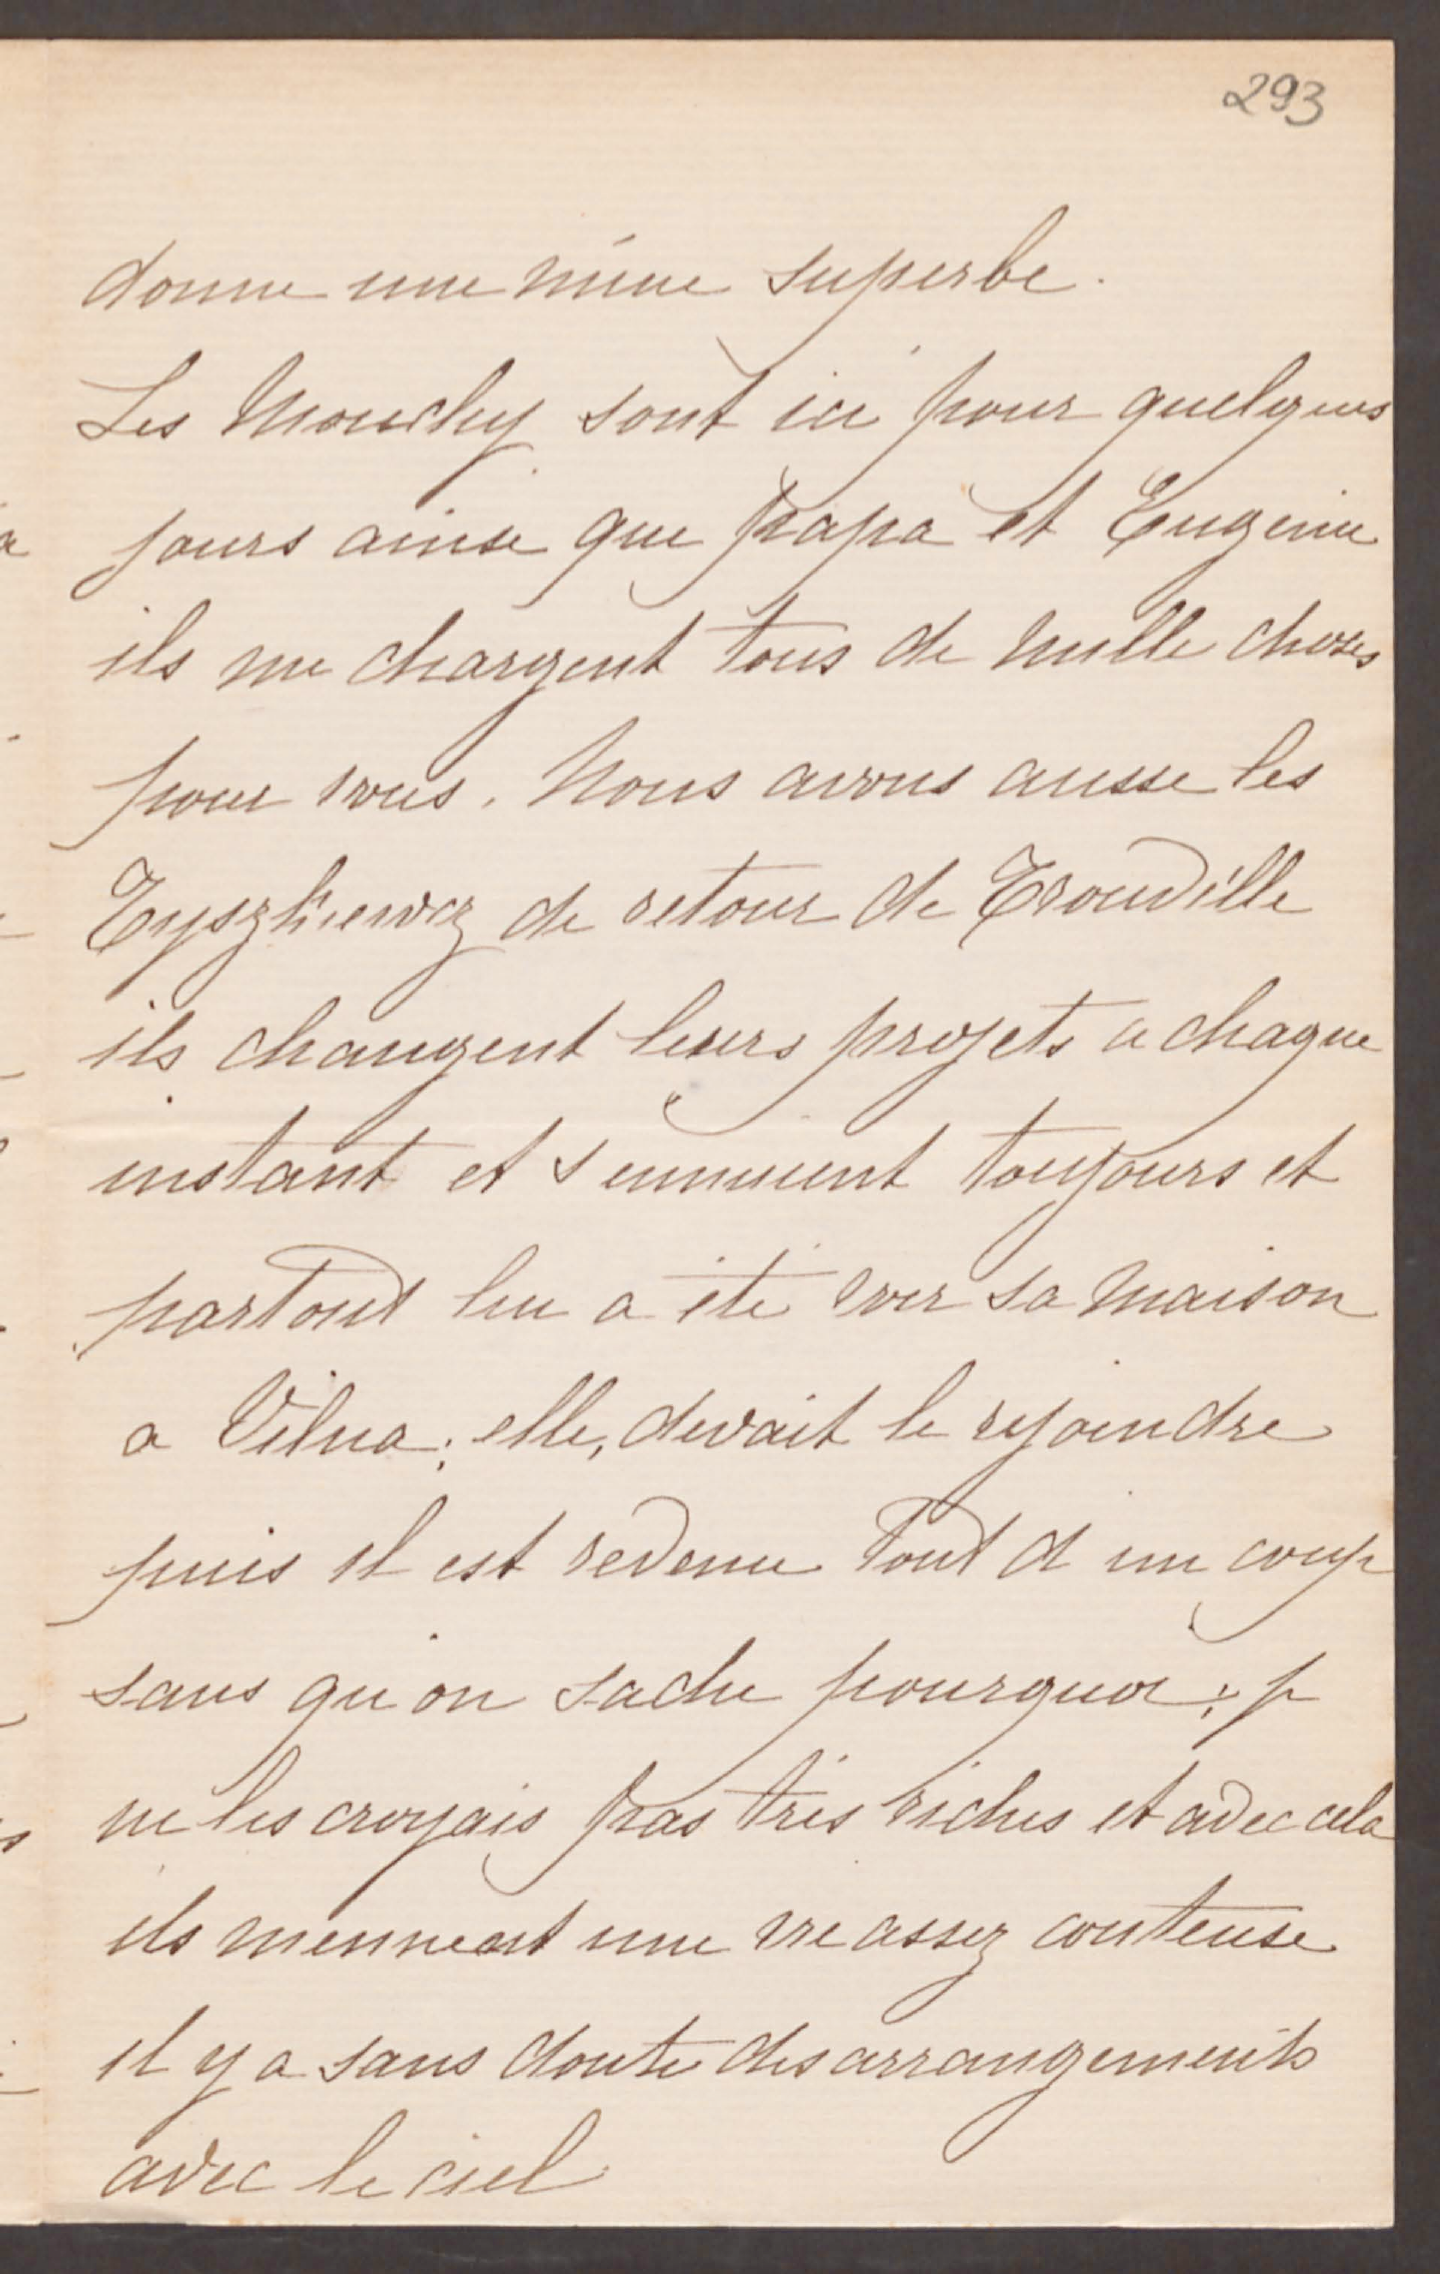 293
donne une mine superbe.
Les Mouchy sont ici pour quelques
jours ainsi que papa et Eugénie
ils me chargent tous de mille choses
pour vous. Nous avons aussi les
Tyszkiewicz de retour de Trouville
ils changent leurs projets a chaque
instant et s ennuient toujours et
partout lui a été voir sa maison
a Vilna; elle, devait le rejoindre
puis il est revenu tout d un coup
sans qu on sache pourquoi; je
ne les croyais pas très riches et avec cela
ils mennent une vie assez couteuse
il y a sans doute des arrangements
avec le ciel